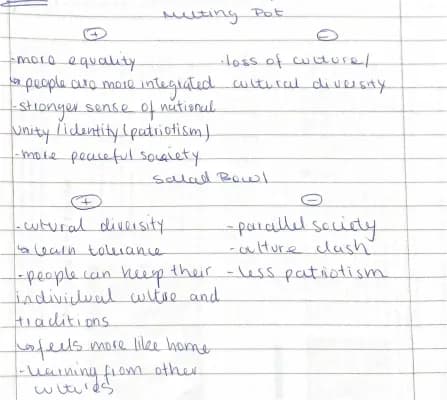 Melting Pot
+ -
- more equality - loss of culture/
↳ people are more integrated cultural diversity
- stronger sense of national
unity/identity (patriotism)
- more peaceful society
Salad Bowl
+ -
- cultural diversity - parallel society
↳ learn tolerance - culture clash
- people can keep their - less patriotism
individual culture and
traditions
↳ feels more like home
- learning from other
cultures